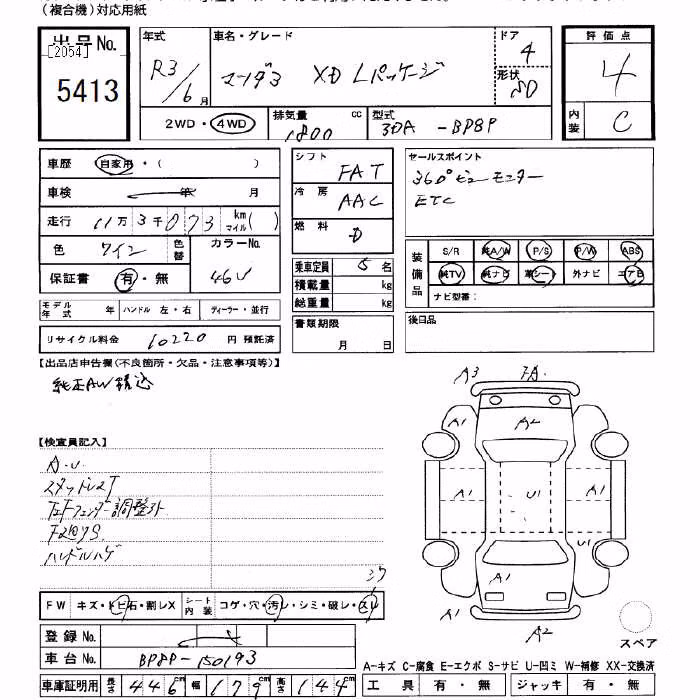 (複合機)対応用紙
出品No.
[2054]
5413
年式 R3/6月
車名・グレード マツダ3 XD Lパッケージ
ドア 4
形状 SD
2WD・4WD
排気量 1800 cc
型式 3DA-BP8P
評価点 4
内装 C
車歴 自家用・( )
車検 年 月
走行 11万3千073 km マイル( )
色 ワイン 色替
カラーNo. 46V
保証書 有・無
モデル年式 年 ハンドル 左・右 ディーラー・並行
リサイクル料金 10220 円 預託済
シフト FAT
冷房 AAC
燃料 D
乗車定員 5名
積載量 kg
総重量 kg
書類期限 月 日
セールスポイント
360°ビューモニター
ETC
装備品
S/R 純A/W P/S P/W ABS
純TV 純ナビ 革シート 外ナビ エアB
ナビ型番:
後日品
【出品店申告欄(不良箇所・欠品・注意事項等)】
純正AW積込
【検査員記入】
A.U.
スタッドレスT
左Fフェンダー調整外
ハンドルハゲ
A3
A1
A2
A1
A1
U1
A1
U1
A1
A1
A1
A2
スペア
FW キズ・トビ石・割レX シート内装 コゲ・穴・汚レ・シミ・破レ・スレ
登録No.
車台No. BP8P-150193
車庫証明用 長さ 446 cm 幅 179 cm 高さ 144 cm
A-キズ C-腐食 E-エクボ S-サビ U-凹ミ W-補修 XX-交換済
工具 有・無 ジャッキ 有・無